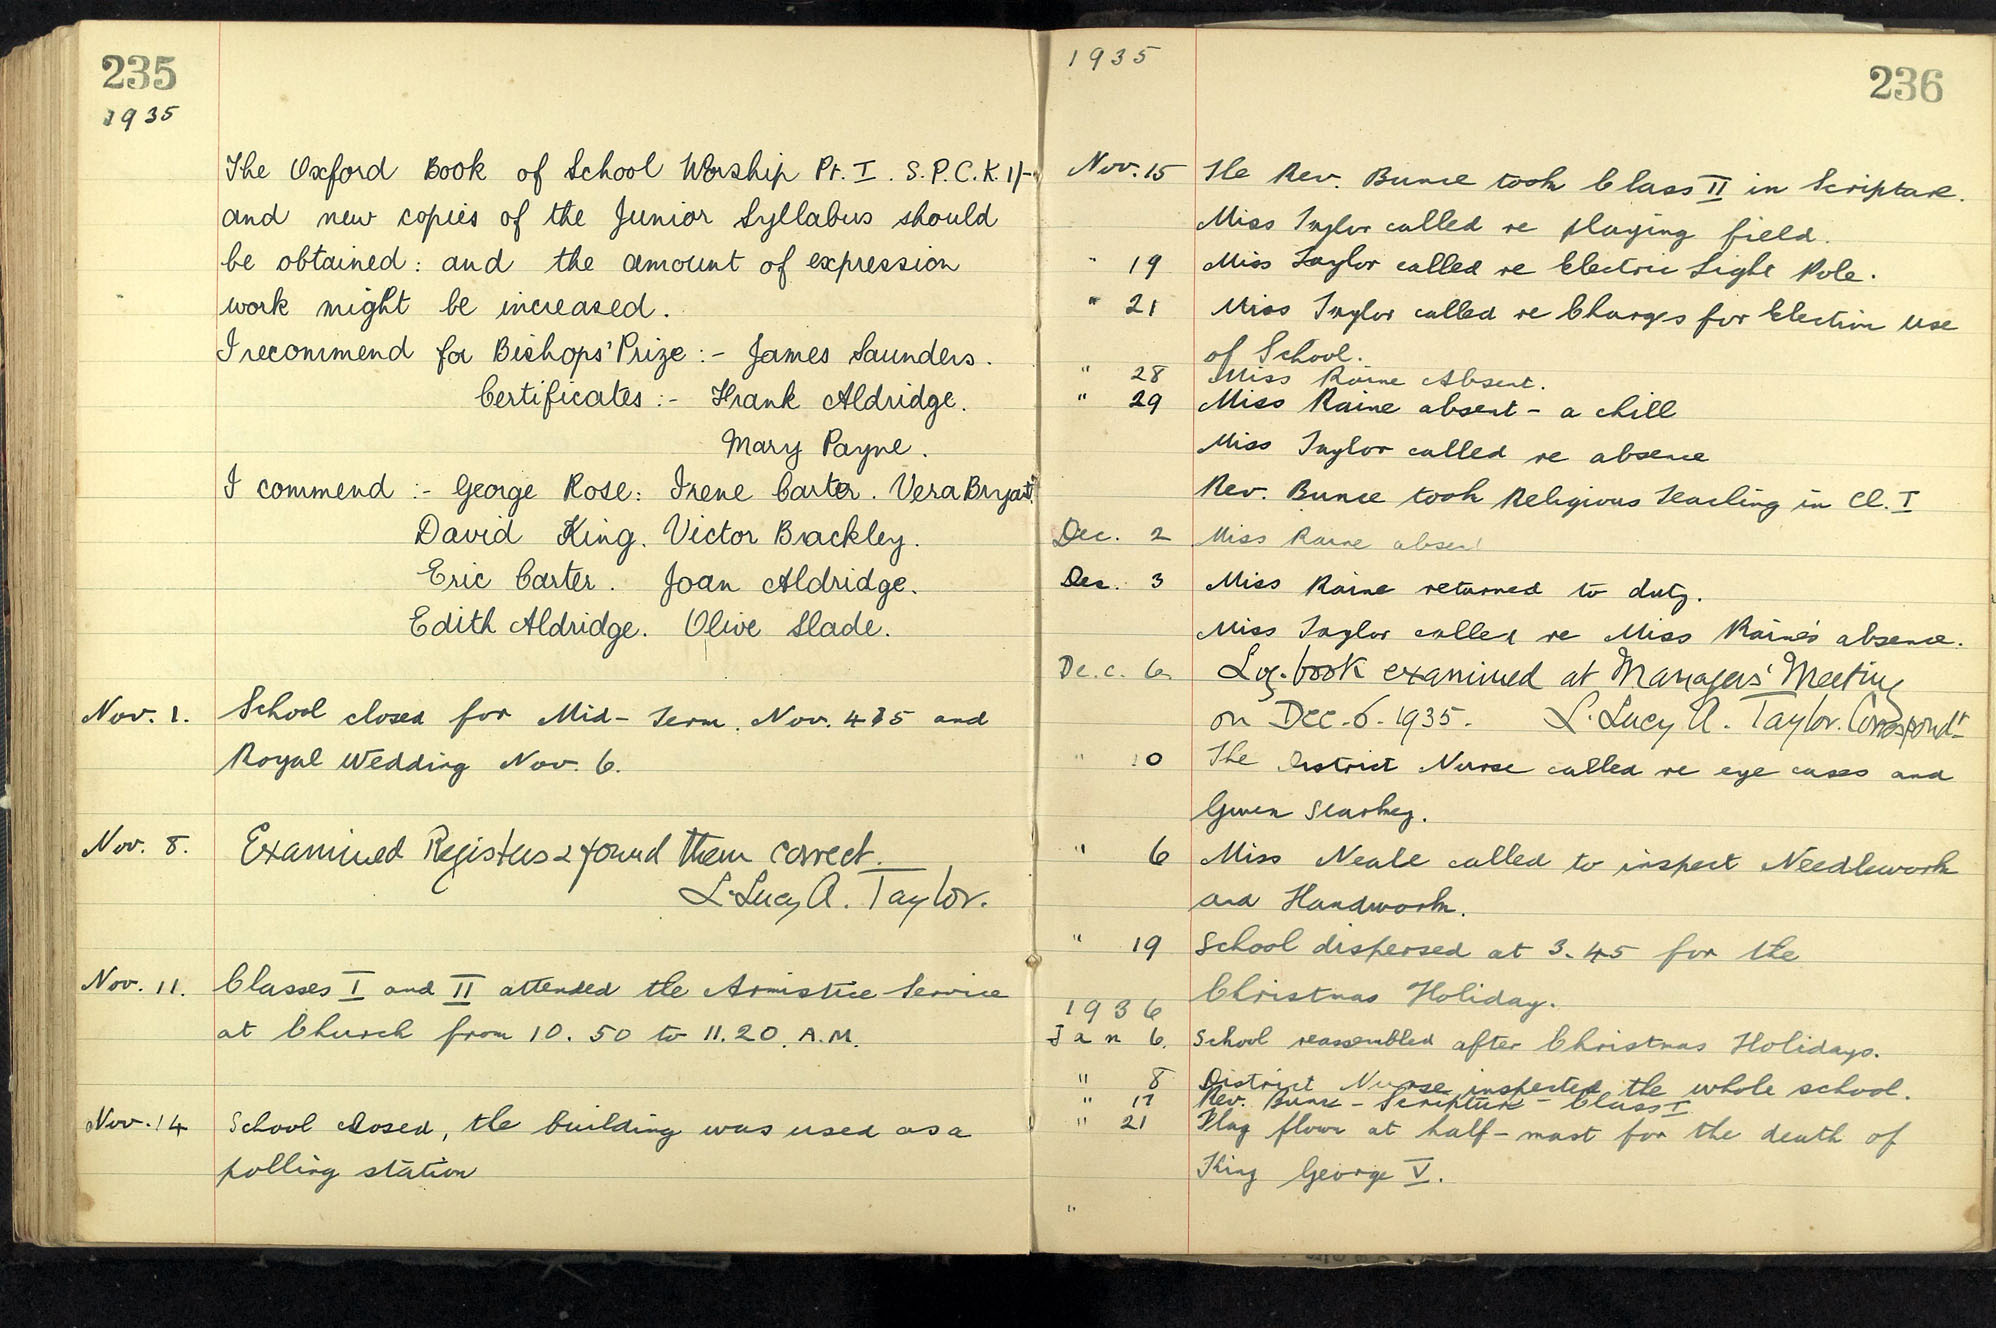 235
1935
The Oxford Book of School Worship Pt. I. S.P.C.K. 1/-
and new copies of the Junior Syllabus should
be obtained: and the amount of expression
work might be increased.
I recommend for Bishops' Prize :- James Saunders.
Certificates :- Frank Aldridge.
Mary Payne.
I commend :- George Rose: Irene Carter. Vera Bryant.
David King. Victor Brackley.
Eric Carter. Joan Aldridge.
Edith Aldridge. Olive Slade.
Nov. 1. School closed for Mid-Term. Nov. 4 & 5 and
Royal Wedding Nov. 6.
Nov. 8. Examined Registers & found them correct.
L. Lucy A. Taylor.
Nov. 11. Classes I and II attended the Armistice Service
at Church from 10.50 to 11.20 A.M.
Nov. 14 School closed, the building was used as a
polling station
1935
236
Nov. 15 The Rev. Bunce took Class II in Scripture.
Miss Taylor called re playing field.
" 19 Miss Taylor called re Electric Light Pole.
" 21 Miss Taylor called re Charges for Election use
of School.
" 28 Miss Raine Absent.
" 29 Miss Raine absent - a chill
Miss Taylor called re absence
Rev. Bunce took Religious Teaching in Cl. I
Dec. 2 Miss Raine absent
Dec. 3 Miss Raine returned to duty.
Miss Taylor called re Miss Raine's absence.
Dec. 6 Log-book examined at Managers' Meeting
on Dec. 6. 1935. L. Lucy A. Taylor. Correspondt
" 10 The District Nurse called re eye cases and
Gwen
" 6 Miss Neale called to inspect Needlework
and Handwork.
" 19 School dispersed at 3.45 for the
Christmas Holiday.
1936
Jan 6. School reassembled after Christmas Holidays.
" 8 District Nurse inspected the whole school.
" 17 Rev. Bunce - Scripture - Class I
" 21 Flag flown at half-mast for the death of
King George V.
"